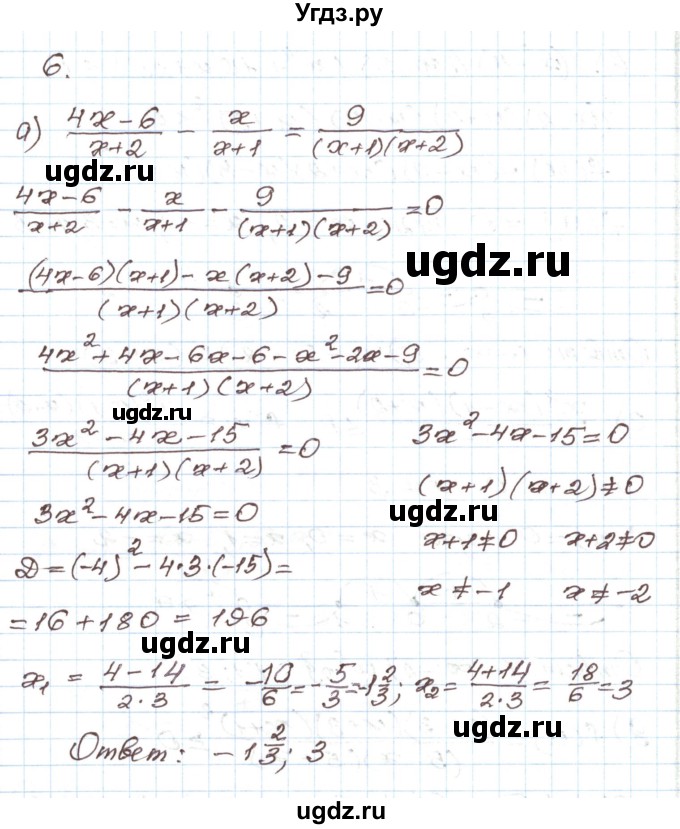 Угдз.ру
6.
а) (4x-6)/(x+2) - x/(x+1) = 9/((x+1)(x+2))
ugdz.ru
(4x-6)/(x+2) - x/(x+1) - 9/((x+1)(x+2)) = 0
ugdz.ru
((4x-6)(x+1) - x(x+2) - 9)/((x+1)(x+2)) = 0
(4x² + 4x - 6x - 6 - x² - 2x - 9)/((x+1)(x+2)) = 0
ugdz.ru
(3x² - 4x - 15)/((x+1)(x+2)) = 0
3x² - 4x - 15 = 0
(x+1)(x+2) ≠ 0
3x² - 4x - 15 = 0
ugdz.ru
x+1≠0 x+2≠0
D = (-4)² - 4·3·(-15) =
x ≠ -1 x ≠ -2
= 16 + 180 = 196
ugdz.ru
x₁ = (4-14)/(2·3) = -10/6 = -5/3 = -1 2/3; x₂ = (4+14)/(2·3) = 18/6 = 3
ugdz.ru
Ответ: -1 2/3; 3
ugdz.ru
ugdz.ru